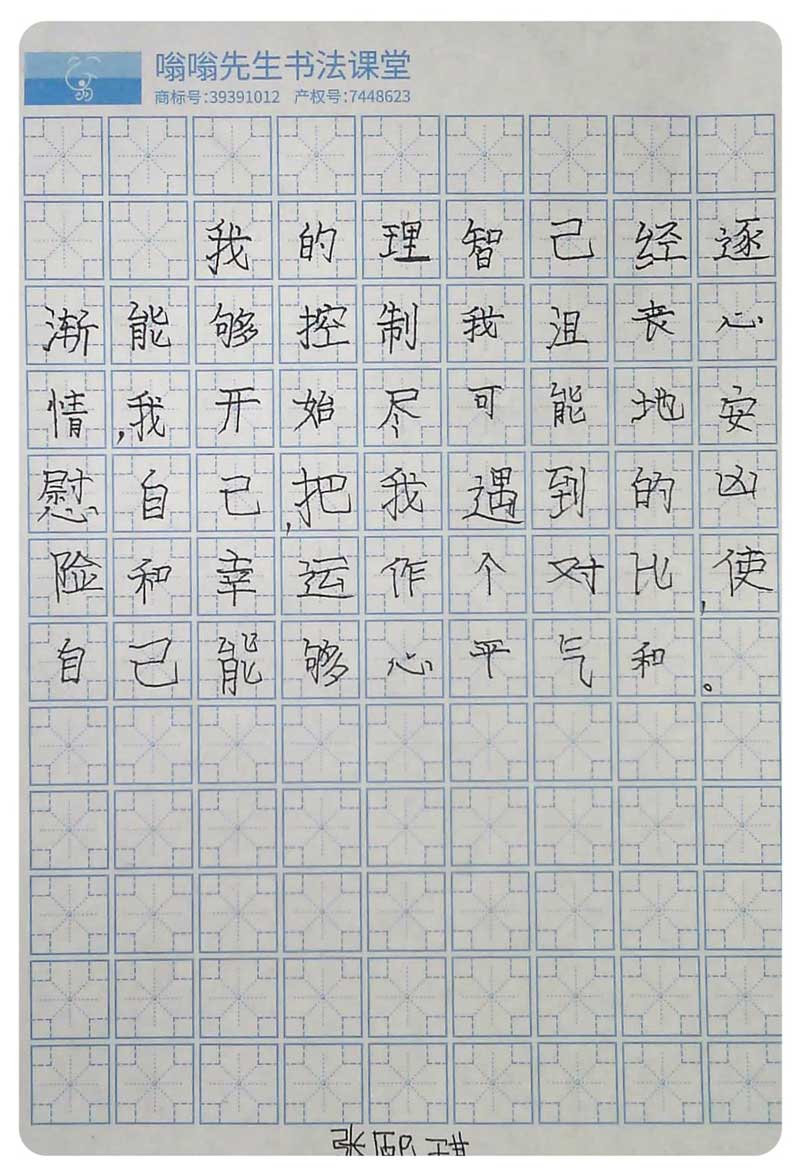 嗡嗡先生书法课堂
商标号:39391012 产权号:7448623
我的理智己经逐
渐能够控制我沮丧心
情,我开始尽可能地安
慰自己,把我遇到的凶
险和幸运作个对比,使
自己能够心平气和。